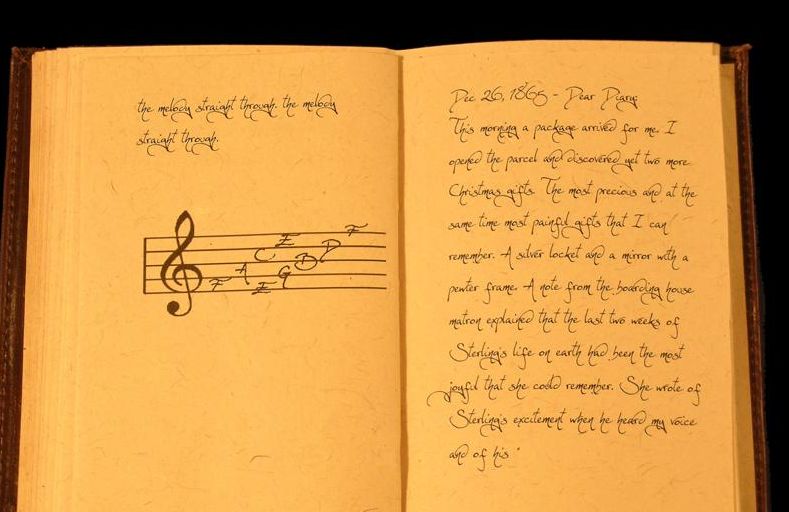 the melody straight through. the melody
straight through.
F A C E
E G B D F
Dec 26, 1865 - Dear Diary:
This morning a package arrived for me. I
opened the parcel and discovered yet two more
Christmas gifts. The most precious and at the
same time most painful gifts that I can
remember. A silver locket and a mirror with a
pewter frame. A note from the boarding house
matron explained that the last two weeks of
Sterling's life on earth had been the most
joyful that she could remember. She wrote of
Sterling's excitement when he heard my voice
and of his "